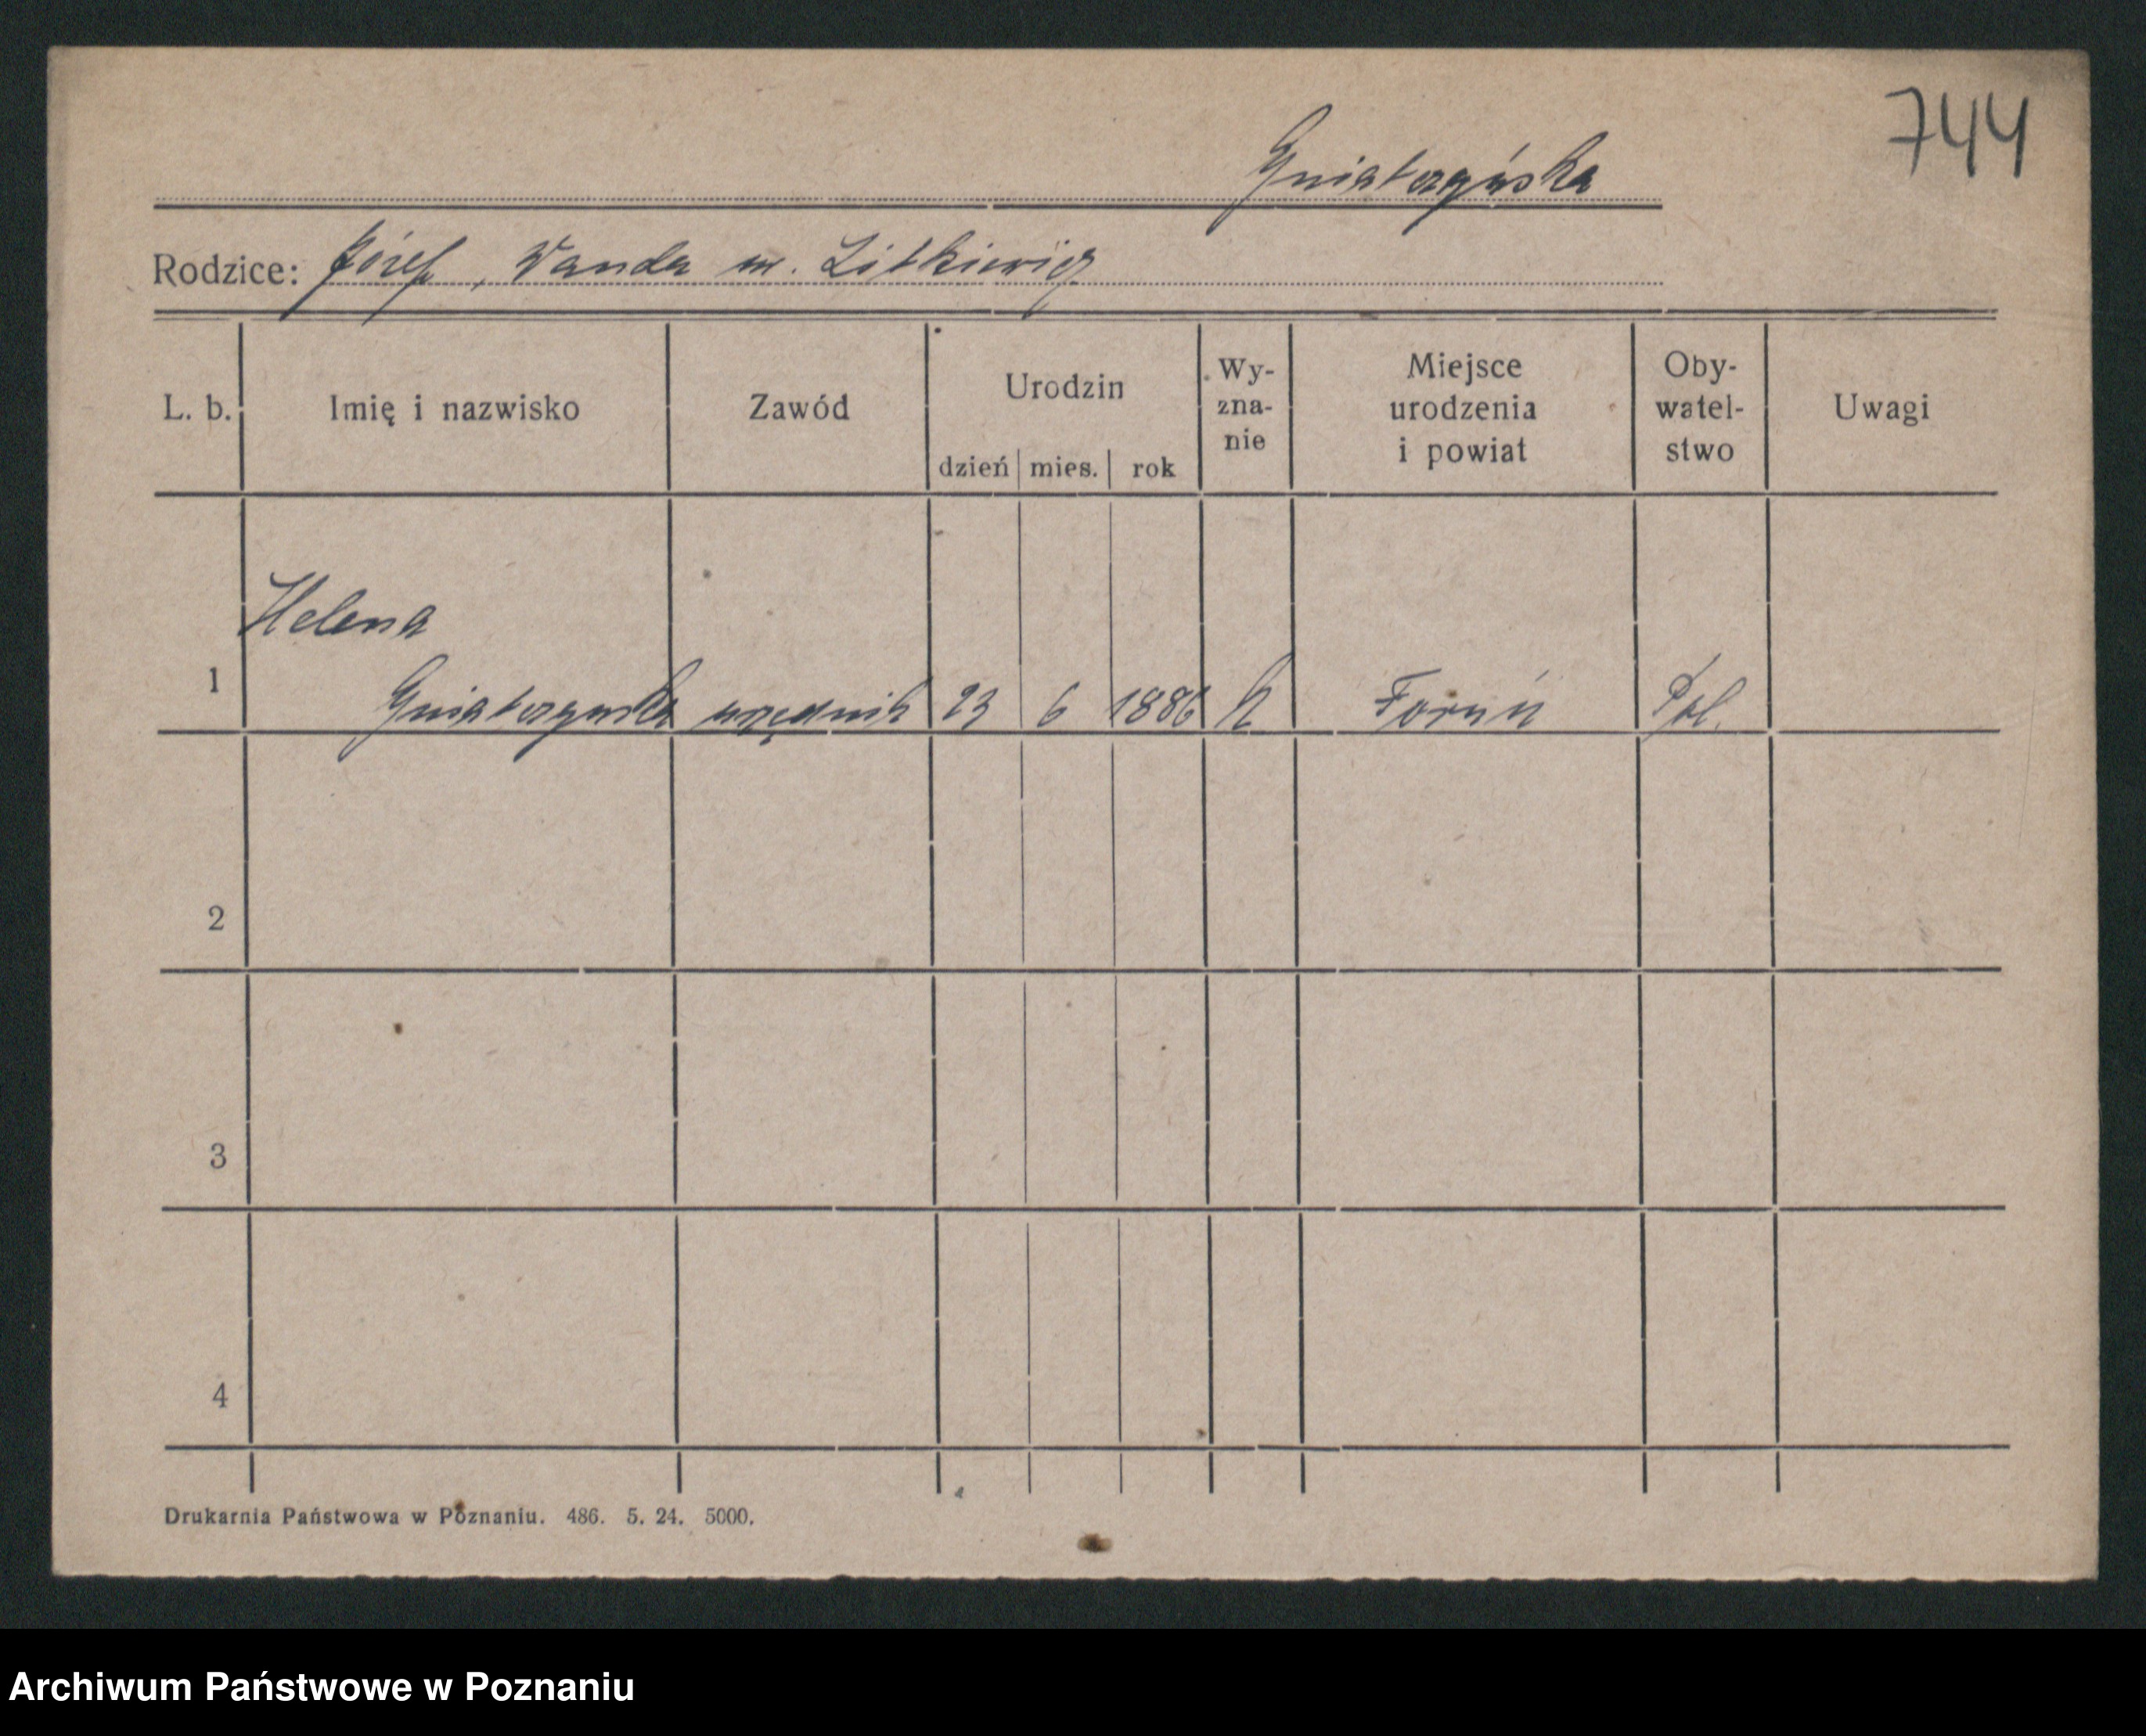 744
Gniatczyńska
Rodzice: Józef, Wanda ur. Litkiewicz
L. b. Imię i nazwisko Zawód Urodzin dzień mies. rok Wy-zna-nie Miejsce urodzenia i powiat Oby-watel-stwo Uwagi
Helena
1 Gniatczynska urzędnik 23 6 1886 k Toruń Pol.
2
3
4
Drukarnia Państwowa w Poznaniu. 486. 5. 24. 5000.
Archiwum Państwowe w Poznaniu